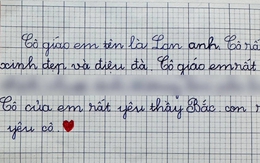 Cô giáo em tên là Lan anh. Cô rất
xinh đẹp và điệu đà. Cô giáo em rất
Cô của em rất yêu thầy Bắc. con r
yêu cô.